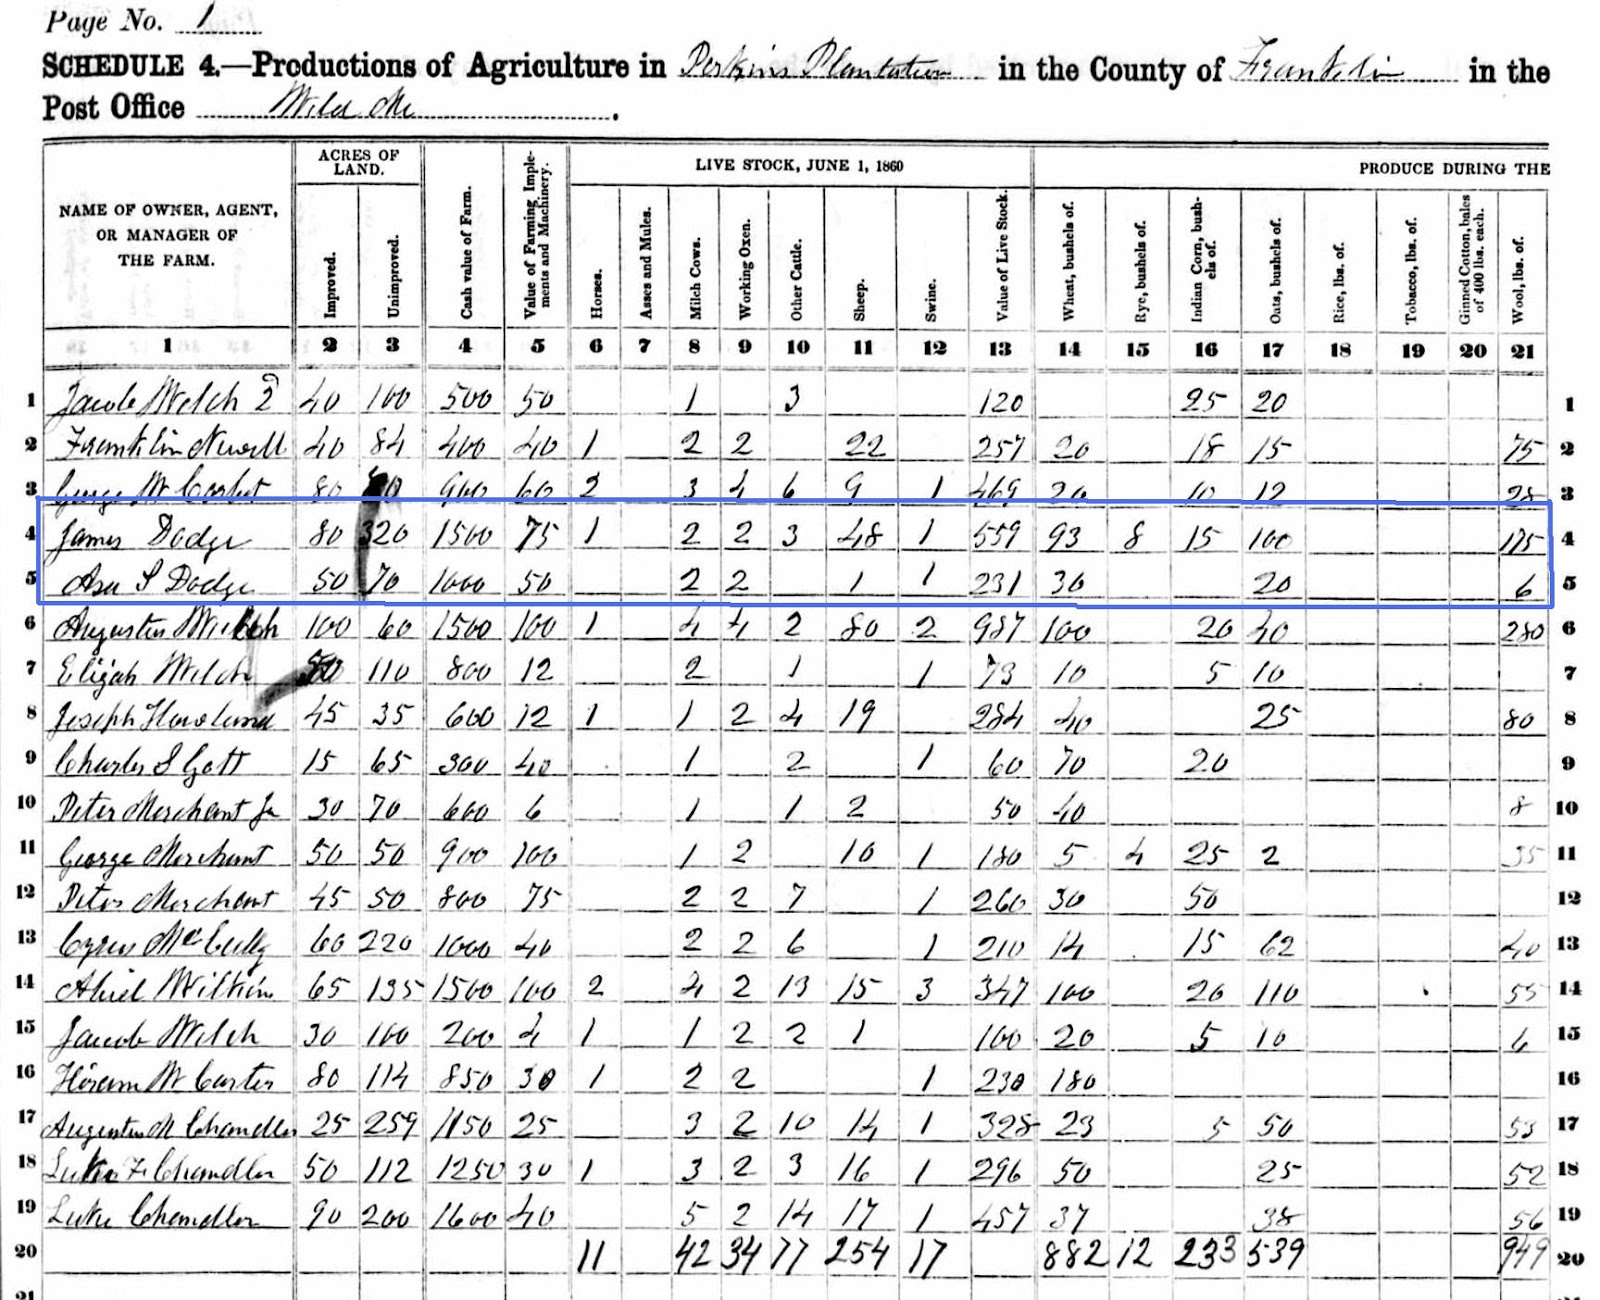 Page No. 1
SCHEDULE 4.—Productions of Agriculture in Perkins Plantation in the County of Franklin in the
Post Office Wild Me.
NAME OF OWNER, AGENT, OR MANAGER OF THE FARM.
ACRES OF LAND.
Improved.
Unimproved.
Cash value of Farm.
Value of Farming Implements and Machinery.
LIVE STOCK, JUNE 1, 1860
Horses.
Asses and Mules.
Milch Cows.
Working Oxen.
Other Cattle.
Sheep.
Swine.
Value of Live Stock.
PRODUCE DURING THE
Wheat, bushels of.
Rye, bushels of.
Indian Corn, bushels of.
Oats, bushels of.
Rice, lbs. of.
Tobacco, lbs. of.
Ginned Cotton, bales of 400 lbs. each.
Wool, lbs. of.
1 2 3 4 5 6 7 8 9 10 11 12 13 14 15 16 17 18 19 20 21
1 Jacob Welch 2d 40 100 500 50 1 3 120 25 20 1
2 Franklin Newell 40 84 400 40 1 2 2 22 257 20 18 15 75 2
3 George W Corbet 80 900 60 2 3 4 6 9 1 469 20 10 12 28 3
4 James Dodge 80 320 1500 75 1 2 2 3 48 1 559 93 8 15 100 175 4
5 Asa S Dodge 50 70 1000 50 2 2 1 1 231 30 20 6 5
6 Augustus Welch 100 60 1500 100 1 4 4 2 80 2 987 100 20 40 280 6
7 Elijah Welch 110 800 12 2 1 1 73 10 5 10 7
8 Joseph Howland 45 35 600 12 1 1 2 4 19 284 40 25 80 8
9 Charles S Gott 15 65 300 40 1 2 1 60 70 20 9
10 Peter Merchant Jr 30 70 600 6 1 1 2 50 40 8 10
11 George Merchant 50 50 900 100 1 2 10 1 180 5 4 25 2 35 11
12 Peter Merchant 45 50 800 75 2 2 7 1 260 30 50 12
13 Cyrus McCully 60 220 1000 40 2 2 6 1 210 14 15 62 40 13
14 Abiel Wilkins 65 135 1500 100 2 4 2 13 15 3 347 100 20 110 55 14
15 Jacob Welch 30 100 200 4 1 1 2 2 1 100 20 5 10 6 15
16 Hiram W Carter 80 114 850 30 1 2 2 1 230 180 16
17 Augustus M Chandler 25 259 1150 25 3 2 10 14 1 328 23 5 50 53 17
18 Luke F Chandler 50 112 1250 30 1 3 2 3 16 1 296 50 25 52 18
19 Luke Chandler 90 200 1600 40 5 2 14 17 1 457 37 38 56 19
20 11 42 34 77 254 17 882 12 233 539 949 20
21